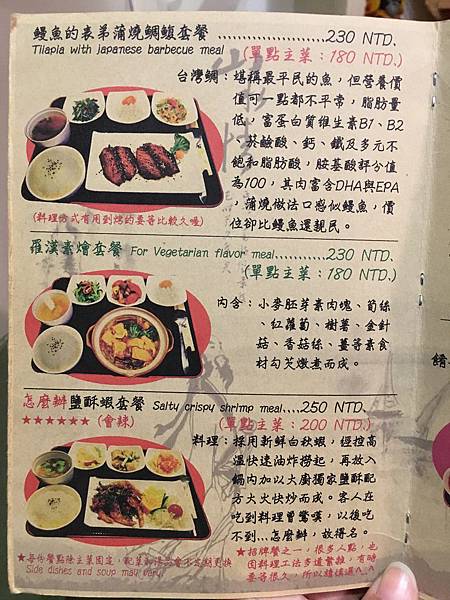 鰻魚的表弟蒲燒鯛鰻套餐 ..................230 NTD.
Tilapia with japanese barbecue meal (單點主菜：180 NTD.)
台灣鯛：堪稱最平民的魚，但營養價
值可一點都不平常，脂肪量
低，富蛋白質維生素B1、B2
、菸鹼酸、鈣、鐵及多元不
飽和脂肪酸，胺基酸評分值
為100，其肉富含DHA與EPA
，蒲燒做法口感似鰻魚，價
位卻比鰻魚還親民。
(料理方式有用到烤的要等比較久喔)
羅漢素燴套餐 For Vegetarian flavor meal...........230 NTD.
(單點主菜：180 NTD.)
內含：小麥胚芽素肉塊、筍絲
、紅蘿蔔、樹薯、金針
菇、香菇絲、薑等素食
材勾芡燉煮而成。
怎麼辦鹽酥蝦套餐 Salty crispy shrimp meal....250 NTD.
★★★★★★ (會辣) (單點主菜：200 NTD.)
料理：採用新鮮白秋蝦，經控高
溫快速油炸撈起，再放入
鍋內加以大廚獨家鹽酥配
方大火快炒而成。客人在
吃到料理曾驚嘆，以後吃
不到...怎麼辦，故得名。
★每份餐點除主菜固定，配菜和湯品會不定期更換
Side dishes and soup may vary.
★招牌餐之一，很多人點，也
因料理工法多道繁雜，有時
要等很久，所以請慎選^_^